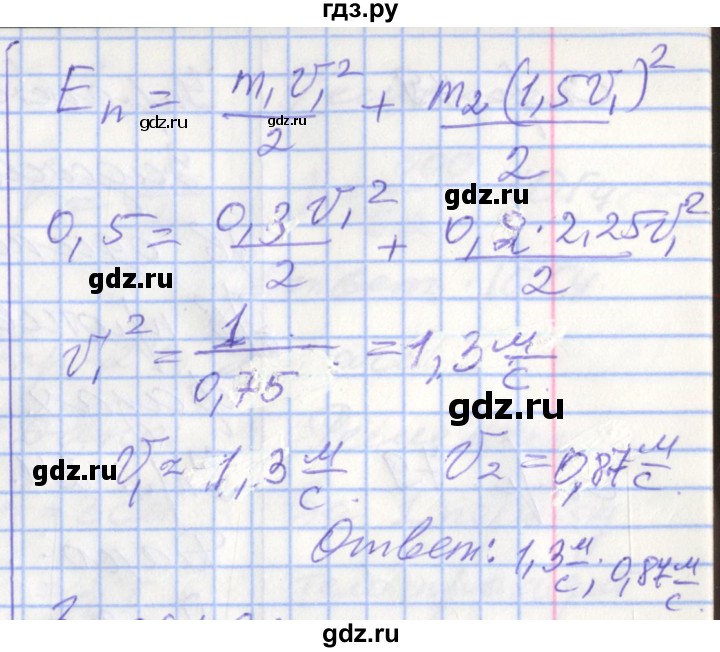 гдз.ру
Eп = m₁v₁²/2 + m₂(1,5v₁)²/2
gdz.ru gdz.ru
gdz.ru
0,5 = 0,3v₁²/2 + 0,2·2,25v₁²/2
gdz.ru
v₁² = 1/0,75 = 1,3 м/с
gdz.ru
gdz.ru
v₁ ≈ 1,3 м/с. v₂ = 0,87 м/с.
Ответ: 1,3 м/с; 0,87 м/с.
gdz.ru